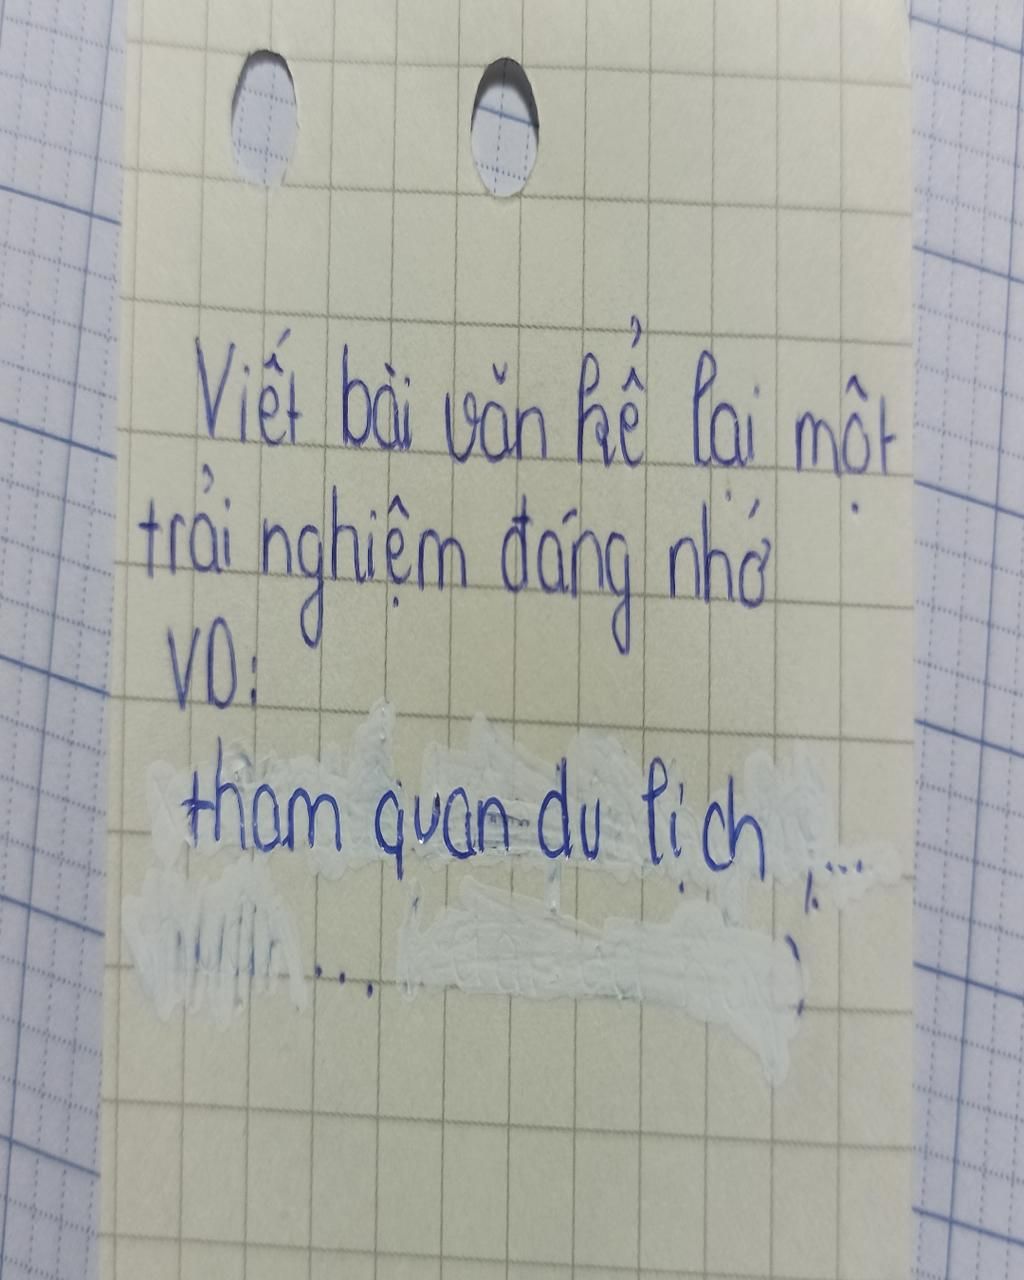 Viết bài văn kể lại một
trải nghiệm đáng nhớ
VD:
tham quan du lịch ,...
...